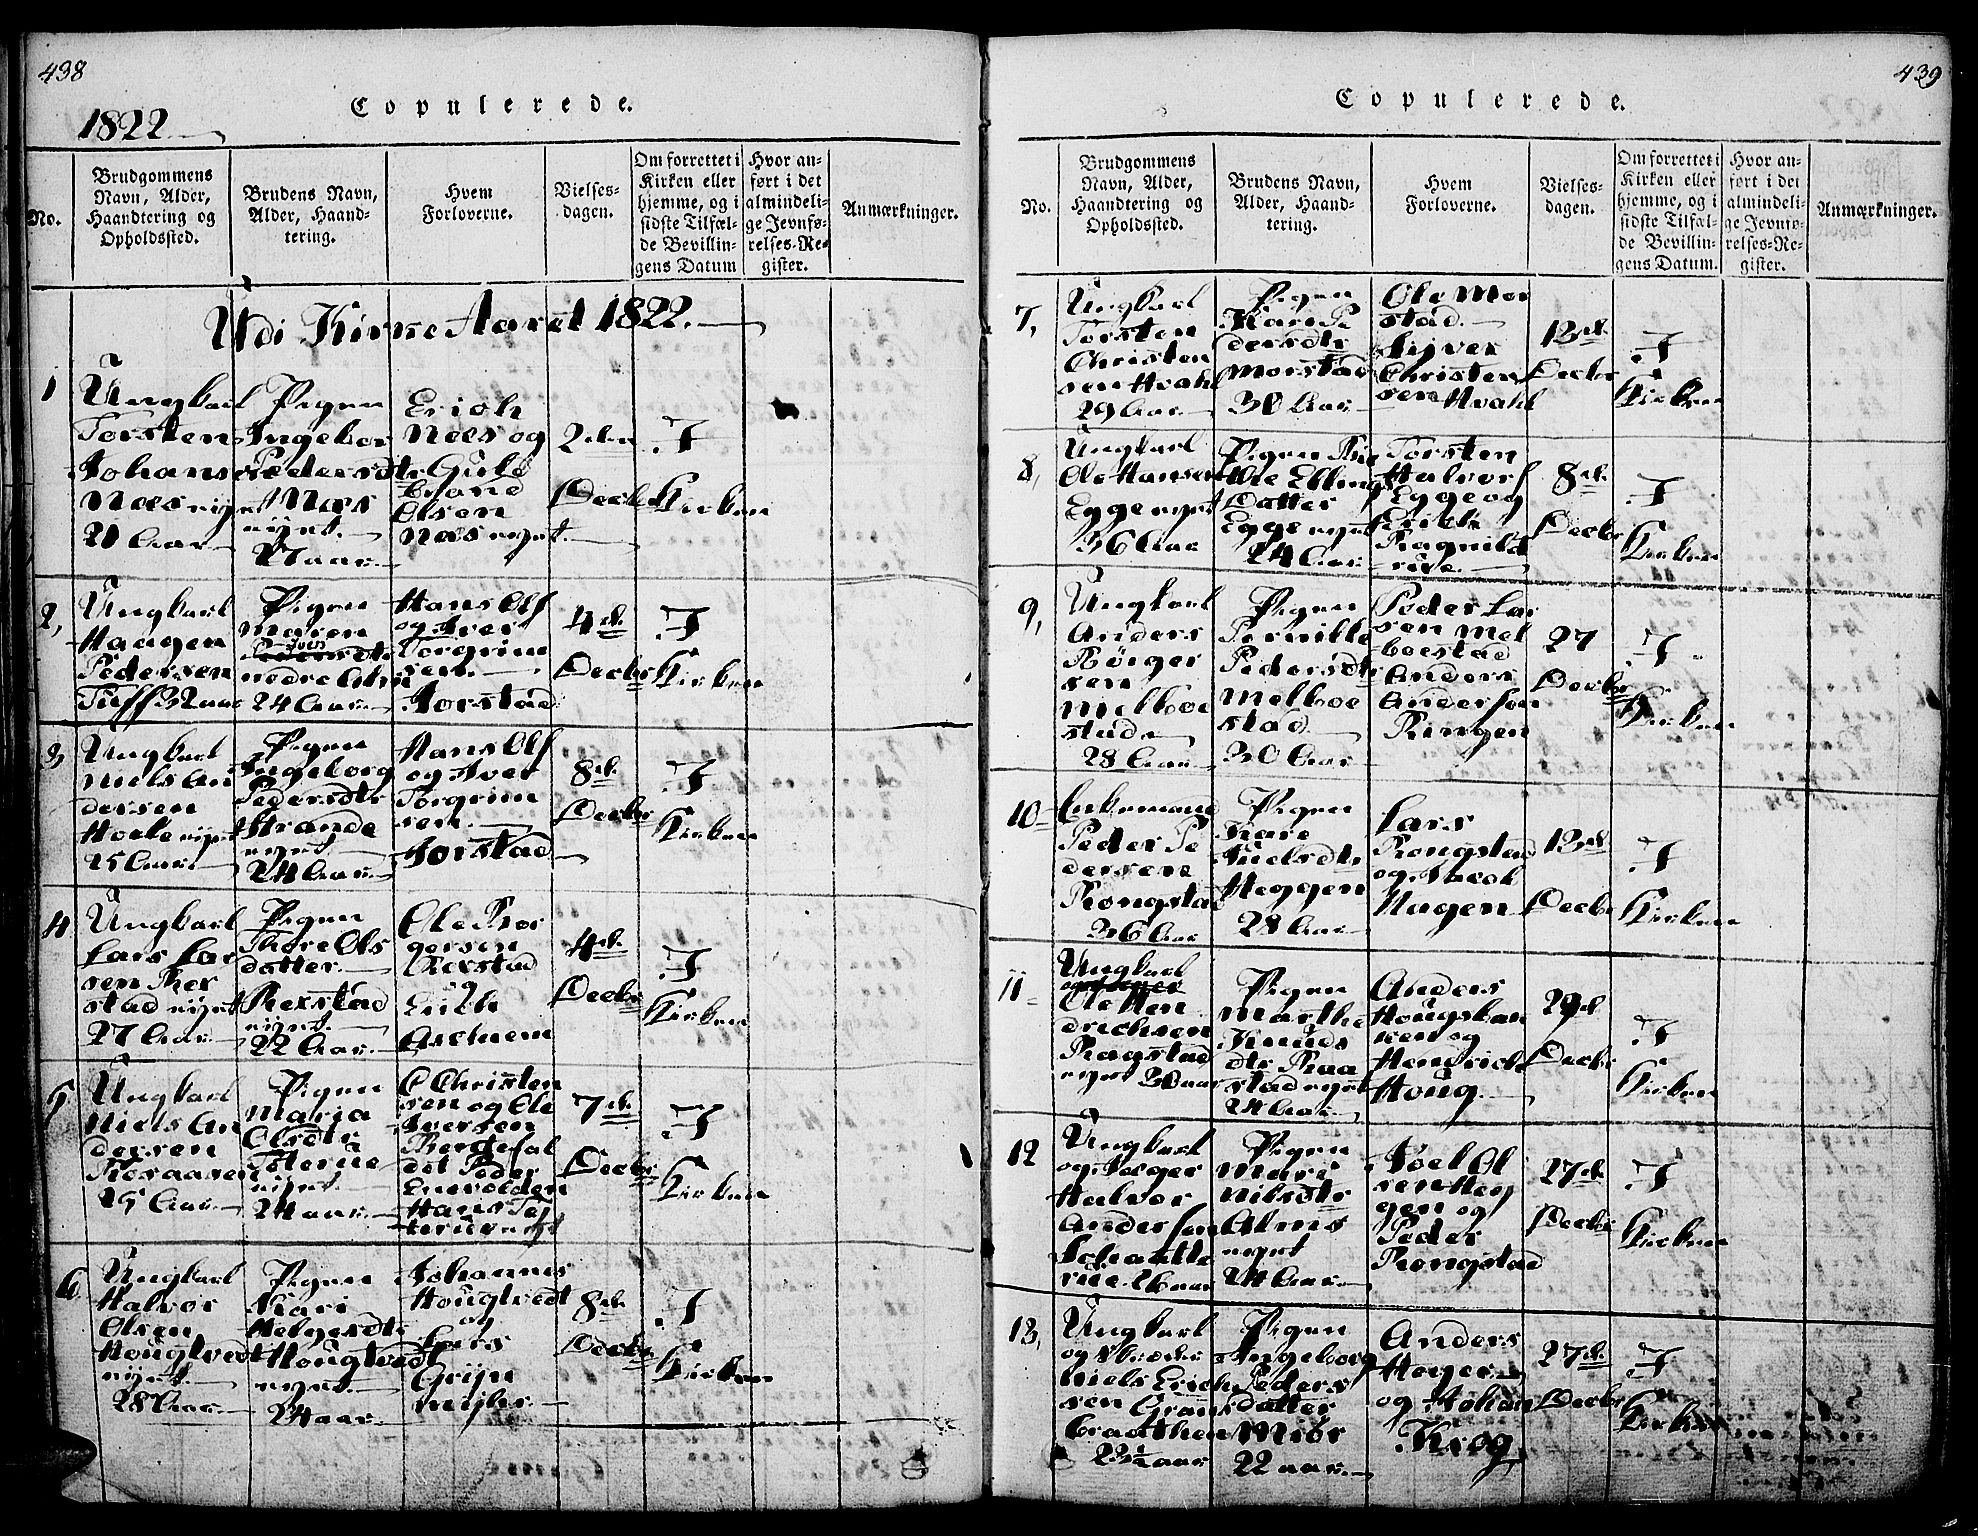 438
1822
Copulerede.
No.
Brudgommens
Navn, Alder,
Haandtering og
Opholdssted.
Brudens Navn,
Alder, Haand-
tering.
Hvem
Forloverne.
Vielses-
dagen.
Om forrettet i
Kirken eller
hjemme, og i
sidste Tilfæl-
de Bevillin-
gens Datum
Hvor an-
ført i det
almindeli-
ge Jevnfø-
relses-Re-
gister.
Anmærkninger.
Udi Kirke Aaret 1822.
1
Ungkarl
Torsten
Johans
Næs
21 Aar
Pigen
Ingebor
Pedersdtr
Næs
27 aar
Erich
Næs og
Guld
brand
Olsen
Næs
2den
Decbr
I
Kirken
2,
Ungkarl
Haagen
Pedersen
Tuff 32 aar
Pigen
Maren
Ivers
24 Aar
Hans Ols
og Iver
Torgrim
sen
Jorstad
4de
Decbr
I
Kirken
3,
Ungkarl
Niels An
dersen
25 Aar
Pigen
Ingeborg
Pedersdtr
Strande
24 Aar
Hans Ols
og Iver
Torgrim
sen
Jorstad
8de
Decbr
I
Kirken
4
Ungkarl
Lars Lar
sen
27 Aar
Pigen
Thore Ols
datter
22 Aar
Ole Bør
gersen
og
Erich
4de
Decbr
I
Kirken
5
Ungkarl
Niels An
dersen
25 Aar
Pigen
Maria
Olsdtr
24 aar
O Christen
sen og Ole
Iversen
Peder
Enevolden
Hans
7de
Decbr
I
Kirken
6
Ungkarl
Halvor
Olsen
Hougtvedt
28 Aar
Pigen
Kari
Helgesdtr
Hougtvedt
24 aar
Johannes
Hougtvedt
og
Lars
8de
Decbr
I
Kirken
439
Copulerede.
No.
Brudgommens
Navn, Alder,
Haandtering og
Opholdssted.
Brudens Navn,
Alder, Haand-
tering.
Hvem
Forloverne.
Vielses-
dagen.
Om forrettet i
Kirken eller
hjemme, og i
sidste Tilfæl-
de Bevillin-
gens Datum.
Hvor an-
ført i det
almindeli-
ge Jevnfø-
relses-Re-
gister.
Anmærkninger.
7,
Ungkarl
Torsten
Christen
sen Hvahl
29 Aar
Pigen
Kari Pe
dersdtr
Morstad
30 Aar
Ole Mor
stad
Siver
Christen
sen Hvahl
13de
Decbr
I
Kirken
8,
Ungkarl
Ole Hansen
Egge
36 Aar
Pigen
Datter
Egge
24 Aar
Torsten
Halvors
Egge og
Erich
Ragnild
rue
8de
Decbr
I
Kirken
9,
Ungkarl
Anders
Børger
sen
Melboe
stad
28 Aar
Pigen
Pernille
Pedersdtr
Melboe
stad
30 Aar
Peder Lar
sen Mel
boestad
Anders
Andersen
Ringen
27
Decbr
I
Kirken
10
Enkemand
Peder Pe
dersen
Rongstad
36 Aar
Pigen
Kare
Juelsdtr
Heggen
28 Aar
Lars
Rongstad
og Jacob
Hagen
13de
Decbr
I
Kirken
11
Ungkarl
Ole Hen
drichsen
30 aar
Pigen
Marthe
Knuds
dtr
24 Aar
Anders
Hougslan
sen og
Hendrich
Houg
29de
Decbr
I
Kirken
12
Ungkarl
og Jæger
Halvor
Andersen
26 aar
Pigen
Mari
Nilsdtr
Alms
24 Aar
Joel Ol
sen Heg
gen og
Peder
Rongstad
27de
Decbr
I
Kirken
13,
Ungkarl
Niels Erich
sen Grans
braathen
23½ aar
Pigen
Ingeborg
Peders
datter
Miør
22 aar
Anders
Høyer
og Johan
Krog
27de
Decbr
I
Kirken